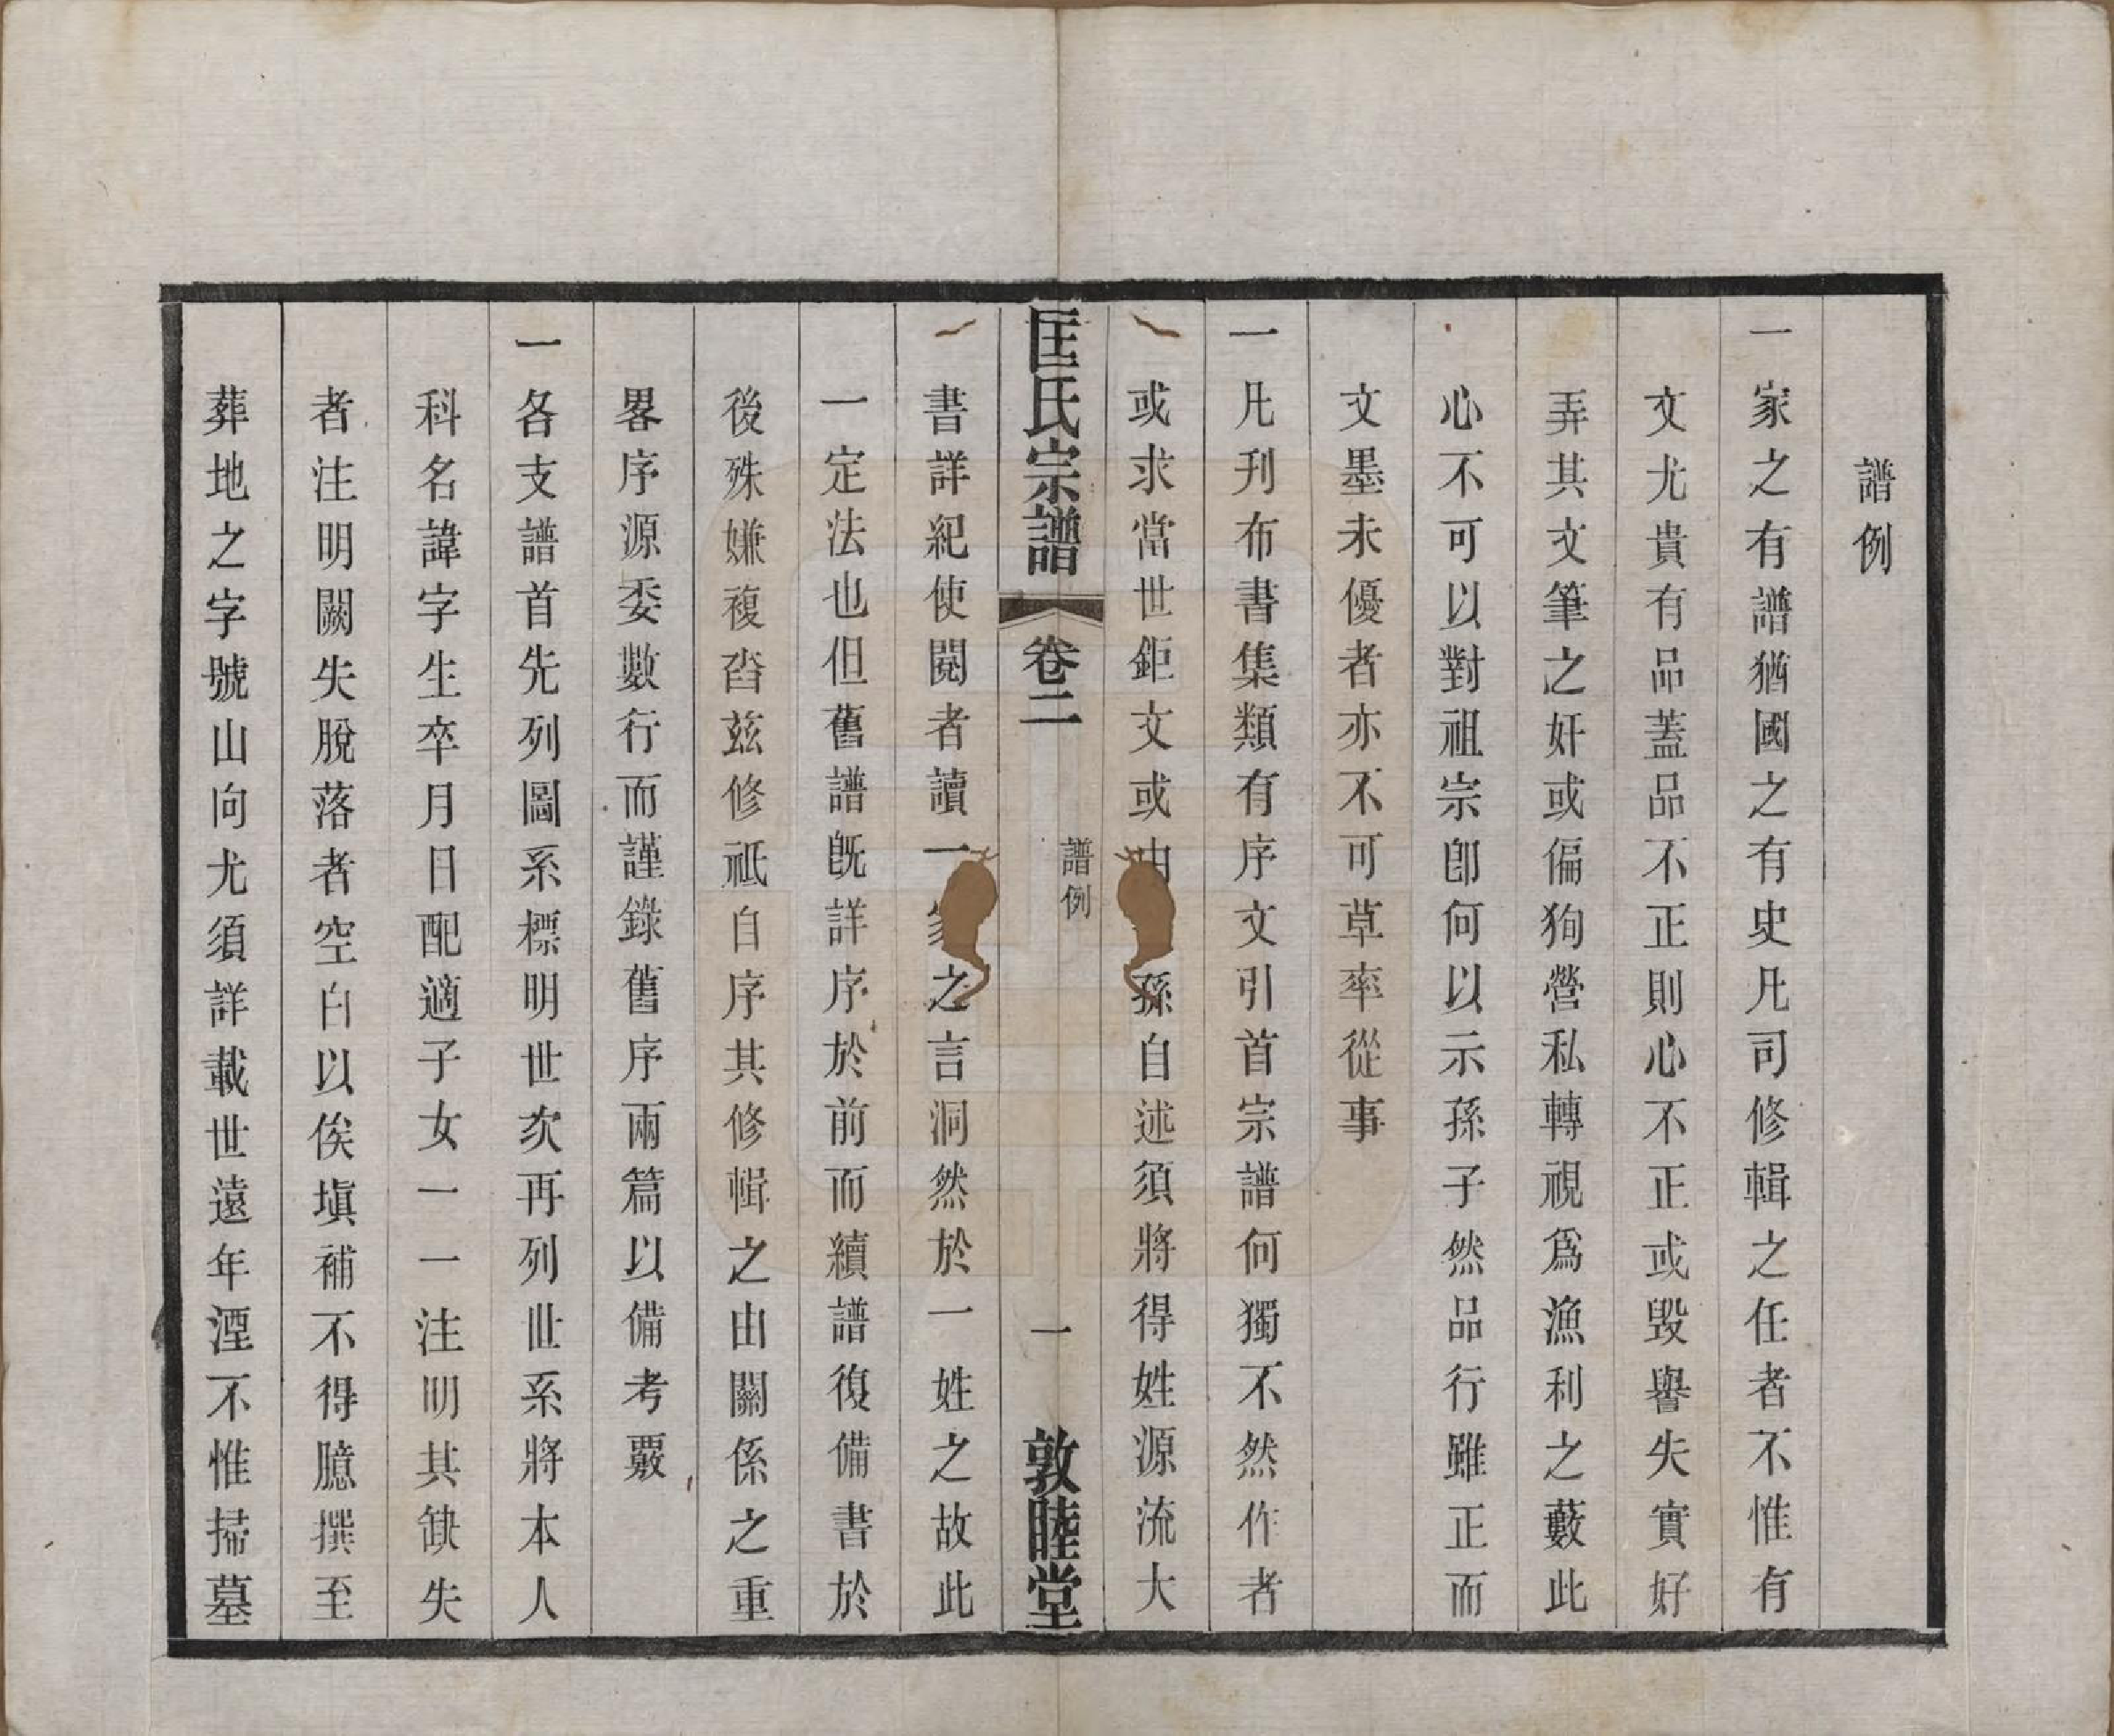 譜例
一家之有譜猶國之有史凡司修輯之任者不惟有
文尤貴有品蓋品不正則心不正或毀譽失實好
弄其文筆之奸或偏狥營私轉視爲漁利之藪此
心不可以對祖宗卽何以示孫子然品行雖正而
文墨未優者亦不可草率從事
一凡刋布書集類有序文引首宗譜何獨不然作者
或求當世鉅文或由孫自述須將得姓源流大
匡氏宗譜 卷二 譜例 一 敦睦堂
書詳紀使閱者讀一家之言洞然於一姓之故此
一定法也但舊譜旣詳序於前而續譜復備書於
後殊嫌複沓茲修祗自序其修輯之由關係之重
畧序源委數行而謹錄舊序兩篇以備考覈
一各支譜首先列圖系標明世次再列世系將本人
科名諱字生卒月日配適子女一一注明其缺失
者注明闕失脫落者空白以俟塡補不得臆撰至
葬地之字號山向尤須詳載世遠年湮不惟掃墓